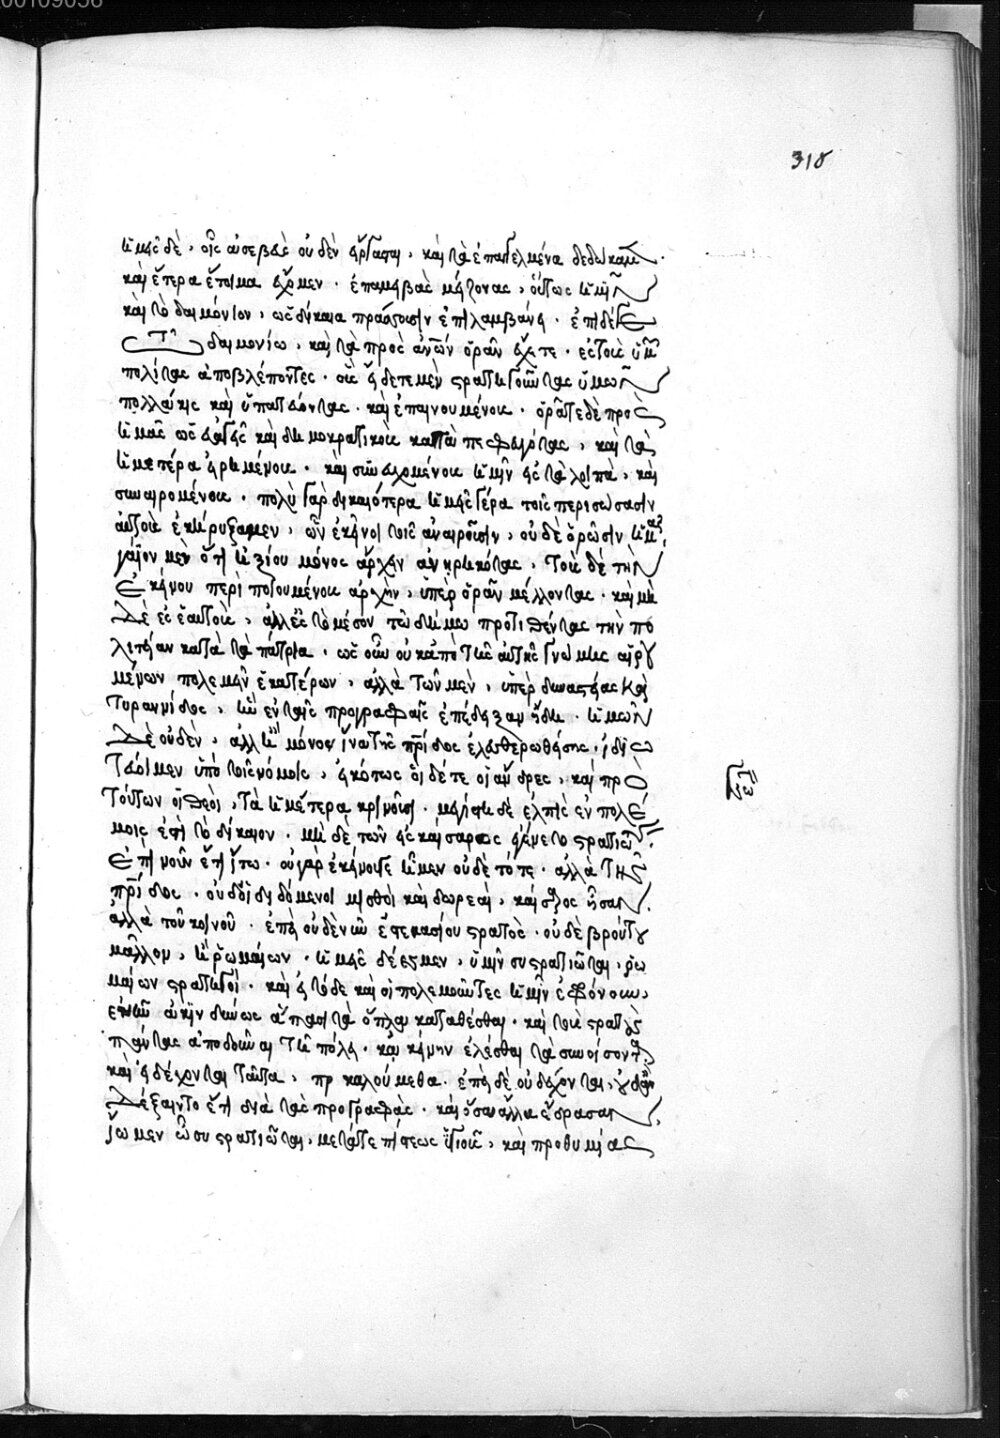 318
ἡμᾶς δὲ, οἷς εὐσεβὲς οὐδὲν εἴργασται, καὶ τὰ ἐπηγγελμένα δεδώκαμεν.
καὶ ἕτερα ἕτοιμα ἔχομεν. ἐπαμείβεται μείζονας, οὕτως ἡμῖν
καὶ τὸ δαιμόνιον, ὡς δίκαια πράσσουσιν ἐπιλαμβάνει. ἐπεὶ δὲ
τῷ δαιμονίῳ, καὶ τὰ πρὸς ἀνθρώπων ὁρᾶν ἔχετε. ἐς τοὺς ὑμετέρους
πολίτας ἀποβλέποντες. οὓς εἴδετε μὲν στρατηγοῦντας ὑμῶν
πολλάκις καὶ ὑπατεύοντας. καὶ ἐπαινουμένους. ὁρᾶτε δὲ πρὸς
ἡμᾶς ὡς εὐαγεῖς καὶ δημοκρατικοὺς καταπεφευγότας, καὶ τὰ
ἡμέτερα ᾑρημένους. καὶ συνευχομένους ἡμῖν ἐς τὰ λοιπὰ, καὶ
συναιρομένους. πολὺ γὰρ δικαιότερα ἡμεῖς γέρα τοῖς περισώσασιν
αὐτοὺς ἐκηρύξαμεν, ὧν ἐκεῖνοι τοῖς ἀναιροῦσιν, οὐδὲ ὁρῶσιν ἡμᾶς
γάϊον μὲν ὅτι ἠξίου μόνος ἄρχειν ἀνῃρηκότας, τοὺς δὲ τὴν
ἐκείνου περιποιουμένους ἀρχὴν, ὑπερορᾶν μέλλοντας. καὶ μὴ
δὲ ἐς ἑαυτοὺς, ἀλλ' ἐς τὸ μέσον τῷ δήμῳ προτιθέντας τὴν πο
λιτείαν κατὰ τὰ πάτρια. ὡς οὖν οὐκ ἀπὸ τῆς αὐτῆς γνώμης αἱρου
μένων πολεμεῖν ἑκατέρων, ἀλλὰ τῶν μὲν, ὑπὲρ δυναστείας καὶ
τυραννίδος, ἣν ἐν ταῖς προγραφαῖς ἐπέδειξαν ἤδη. ἡμῶν
δὲ οὐδὲν, ἀλλ' ἢ μόνον ἵνα τῆς πατρίδος ἐλευθερωθείσης, ἰδιω
τεύοιμεν ὑπὸ τοῖς νόμοις, εἰκότως οἵδε τε οἱ ἄνδρες, καὶ πρὸ
τούτων οἱ θεοὶ, τὰ ἡμέτερα κρίνουσι. μεγίστη δὲ ἐλπὶς ἐν πολέ
μοις ἐστὶ τὸ δίκαιον. μὴ δὲ τῷ ἐς καίσαρος ἐγένετο στρατιώτης
ἐπίνουν ἔτι ἴτω. οὐ γὰρ ἐκείνου γε ἦμεν οὐδὲ τότε. ἀλλὰ τῆς
πατρίδος. οὐδ' οἱ διδόμενοι μισθοὶ καὶ δωρεαὶ, καίσαρος ἦσαν.
ἀλλὰ τοῦ κοινοῦ. ἐπεὶ οὐδὲ νῦν ἐστε κασίου στρατὸς. οὐδὲ βρούτου
μᾶλλον, ἢ ῥωμαίων. ἡμεῖς δέ ἐσμεν, ὑμῖν συστρατιῶται, ῥω
μαίων στρατηγοί. καὶ εἰ τόδε καὶ οἱ πολεμοῦντες ἡμῖν ἐφρόνουν,
ἐνῆν ἀκινδύνως ἅπασι τὰ ὅπλα καταθέσθαι. καὶ τοὺς στρατοὺς
πάντας ἀποδοῦναι τῇ πόλει. καὶ κείνην ἑλέσθαι τὰ συνοίσοντα.
καὶ εἰ δέχονται ταῦτα, προκαλούμεθα. ἐπεὶ δὲ οὐ δέχονται, οὐδ' ἂν
δέξαιντο ἔτι διὰ τὰς προγραφὰς. καὶ ὅσα ἄλλα ἔδρασαν,
ἴωμεν ὦ συστρατιῶται, μετά τε πίστεως ὑγιοῦς, καὶ προθυμίας